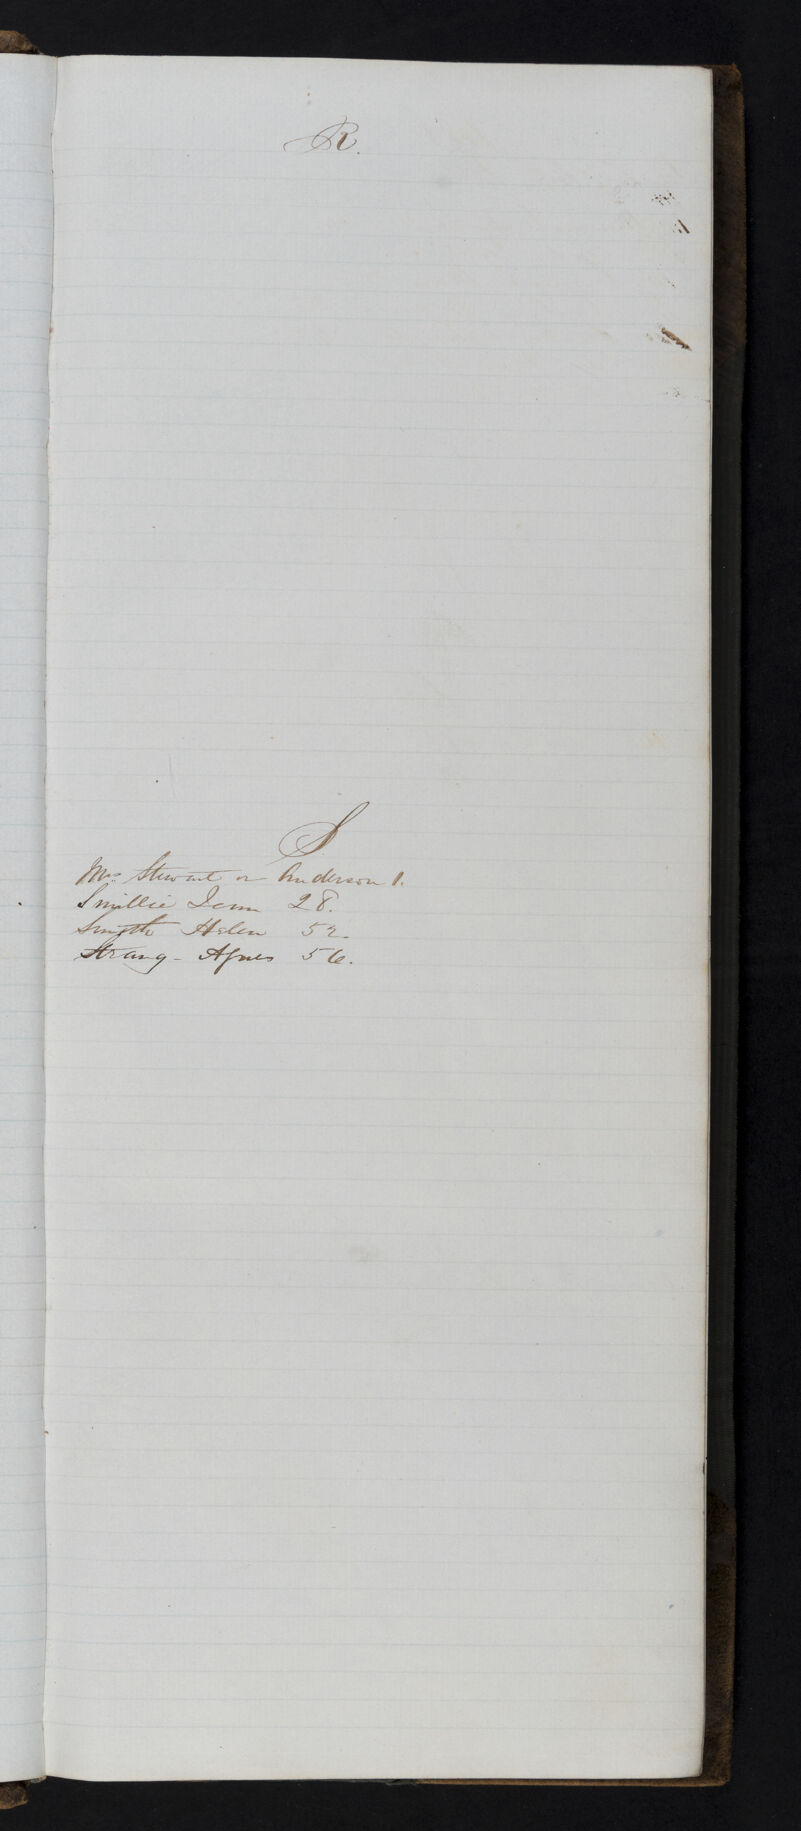 R.
S
Mrs Stewart or Anderson 1.
Smillie Jean 28.
Smyth Helen 52.
Strang - Agnes 56.